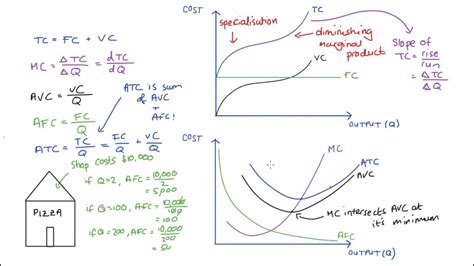 TC = FC + VC
MC = ΔTC/ΔQ = dTC/dQ
AVC = VC/Q
AFC = FC/Q
ATC = TC/Q = FC/Q + VC/Q
ATC is sum
of AVC
+
AFC!
shop costs $10,000
PIZZA
if Q=2, AFC = 10,000/2
= 5,000
if Q=100, AFC = 10,000/100
= 100
if Q=200, AFC = 10,000/200
= 50
COST
specialisation
TC
diminishing
marginal
product
VC
FC
OUTPUT (Q)
Slope of
TC = rise/run
= ΔTC/ΔQ
COST
MC
ATC
AVC
MC intersects AVC at
it's minimum
AFC
OUTPUT (Q)